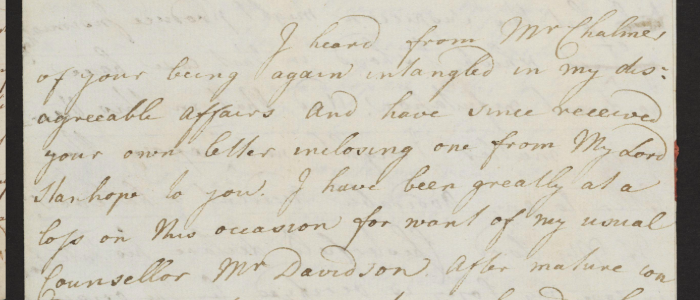 I heard from Mr Chalmer
of your being again intangled in my dis:
agreeable affairs And have since received
your own letter inclosing one from My Lord
Stanhope to you. I have been greatly at a
loss on this occasion for want of my usual
Counsellor Mr Davidson. After mature con